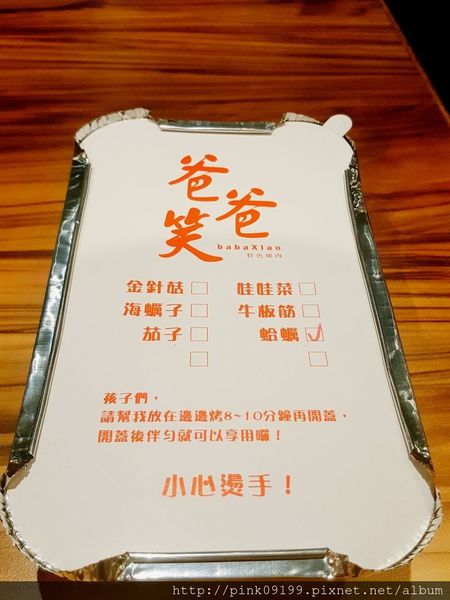 爸爸笑
babaXiao
特色燒肉
金針菇□ 娃娃菜□
海蠣子□ 牛板筋□
茄子□ 蛤蠣☑
□ □
孩子們，
請幫我放在邊邊烤8~10分鐘再開蓋，
開蓋後伴勻就可以享用囉！
小心燙手！
http://pink09199.pixnet.net/album